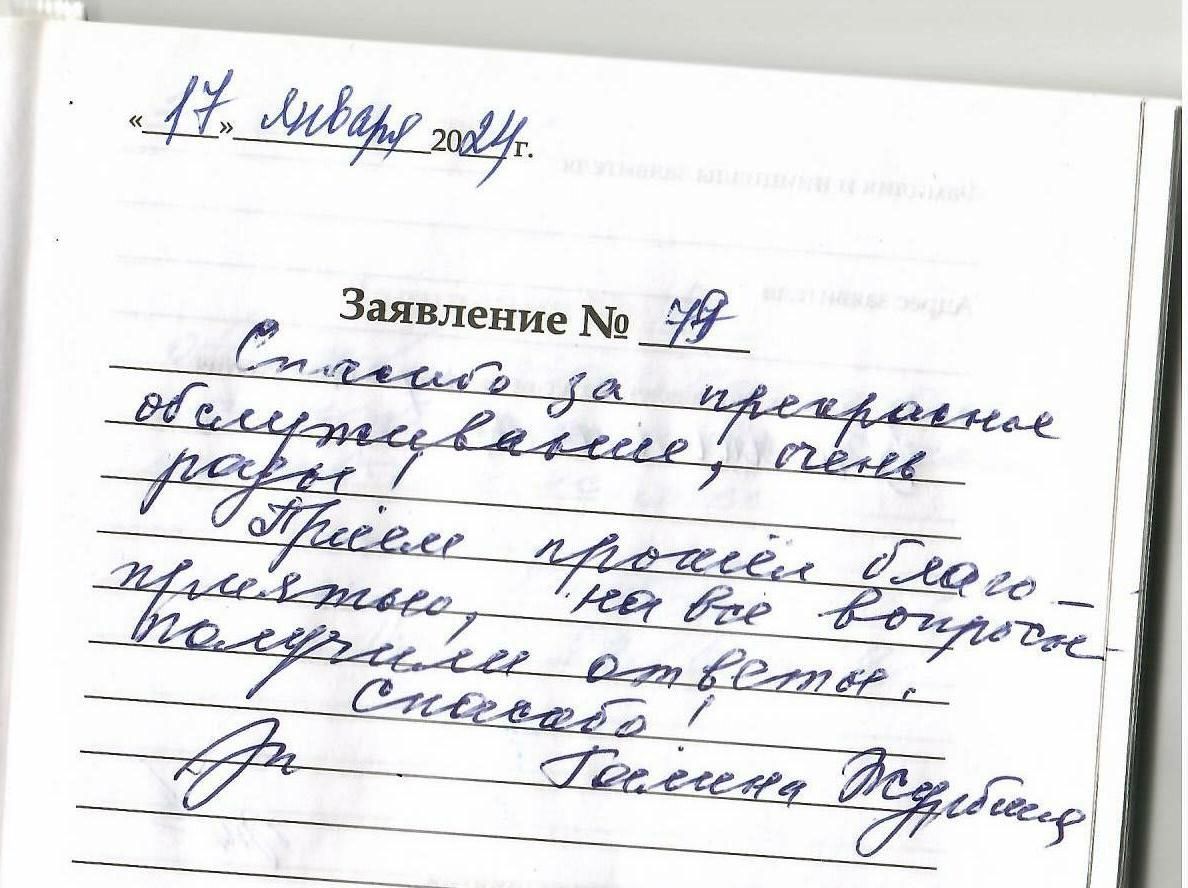 «17» января 2024 г.
Заявление № 79
Спасибо за прекрасное
обслуживание, очень
рады!
Приём прошёл благо-
приятно, на все вопросы
получили ответы.
Спасибо!
Галина Журбина